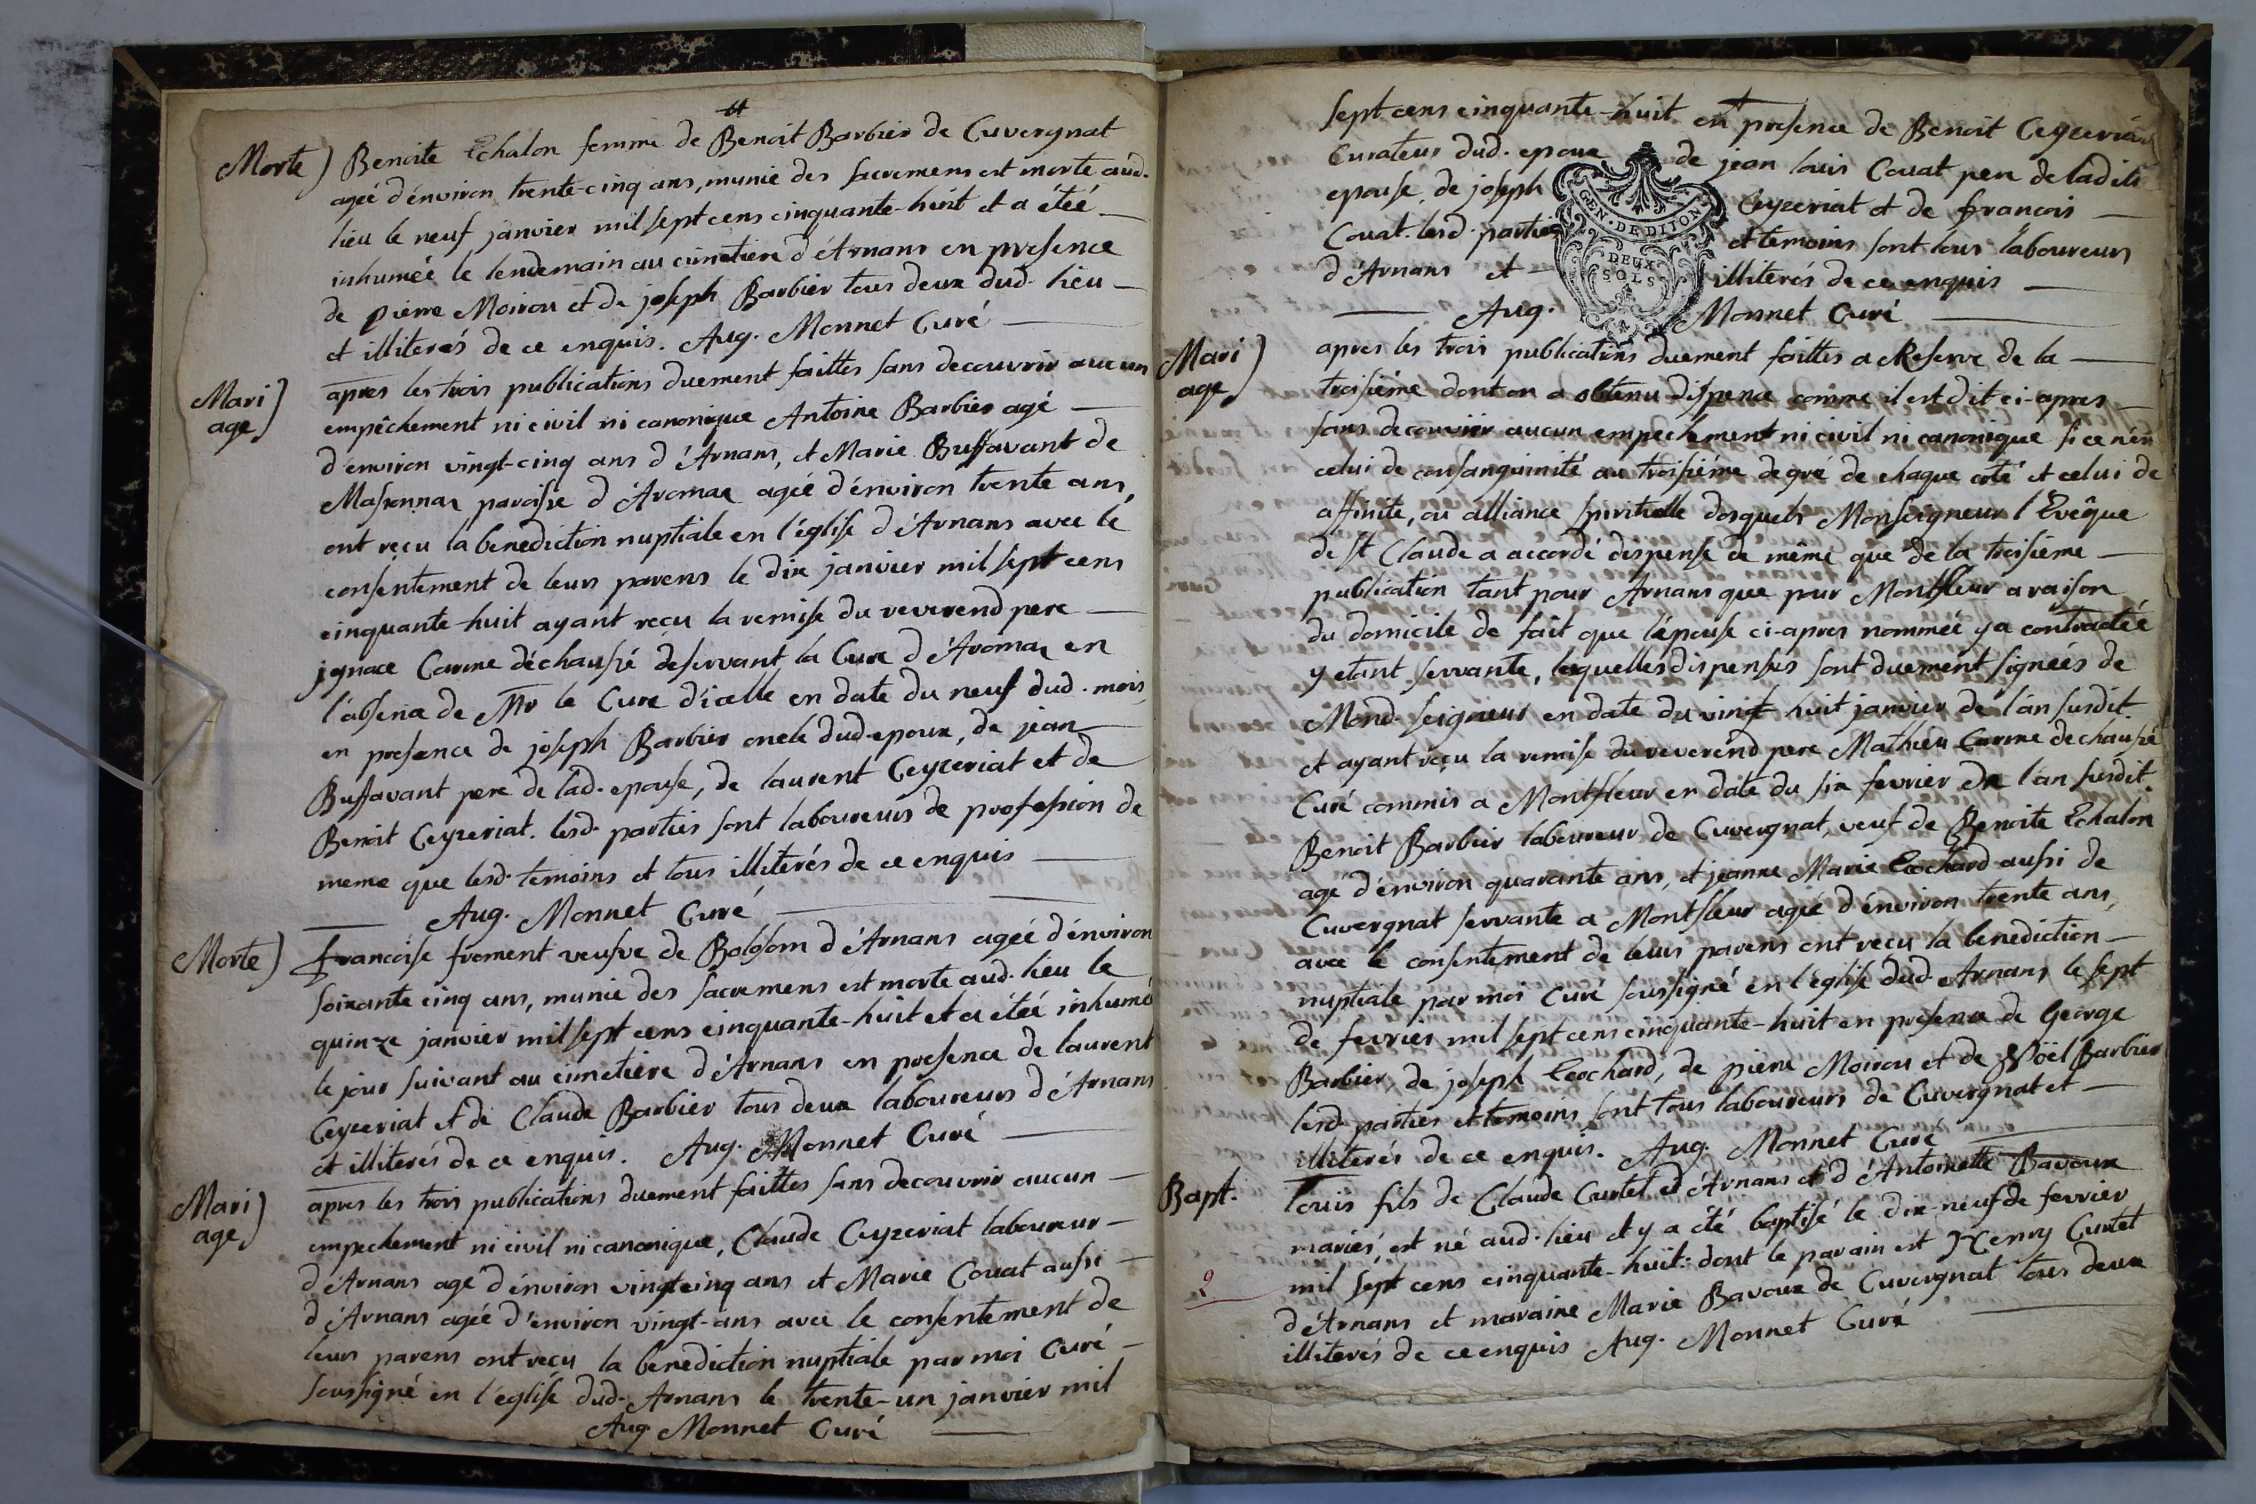 Morte) Benoite Echalon femme de Benoit Barbier de Cuvergnat
agée d'énviron trente-cinq ans, munie des sacremens est morte aud.
lieu le neuf janvier mil sept cens cinquante-huit et a étéé
inhumée le lendemain au cimetiere d'Arnans en presence
de pierre Moirou et de joseph Barbier tous deux dud. lieu
et illiterés de ce enquis. Aug. Monnet Curé
Mari
age) apres les trois publications duement faittes sans decouvrir aucun
empêchement ni civil ni canonique Antoine Barbier agé
d'environ vingt-cinq ans d'Arnans, et Marie Buffavant de
paroisse d'Aromas agée d'énviron trente ans,
ont reçu la benediction nuptiale en l'église d'Arnans avec le
consentement de leurs parens le dix janvier mil sept cens
cinquante-huit ayant reçu la remise du reverend pere
jgnace Carme déchaussé deservant la Cure d'Aromas en
l'absence de Mr le Curé d'icelle en date du neuf dud. mois,
en presence de joseph Barbier oncle dud. epoux, de jean
Buffavant pere de lad. epouse, de laurent Ceyzeriat et de
Benoit Ceyzeriat. lesd. parties sont laboureurs de profession de
meme que lesd. temoins et tous illiterés de ce enquis
Aug. Monnet Curé
Morte) francoise froment veufve de Bolosom d'Arnans agéé d'énviron
soixante cinq ans, munie des sacremens est morte aud. lieu le
quinze janvier mil sept cens cinquante-huit et a étéé inhumé
le jour suivant au cimetière d'Arnans en presence de laurent
Ceyzeriat et de Claude Barbier tous deux laboureurs d'Arnans
et illiterés de ce enquis. Aug. Monnet Curé
Mari
age) apres les trois publications duement faittes sans decouvrir aucun
empechement ni civil ni canonique, Claude Ceyzeriat laboureur
d'Arnans agé d'énviron vingt cinq ans et Marie Couat aussi
d'Arnans agée d'énviron vingt-ans avec le consentement de
leurs parens ont reçu la benediction nuptiale par moi Curé
soussigné en l'église dud. Arnans le trente-un janvier mil
Aug. Monnet Curé
sept cens cinquante-huit en presence de Benoit Ceyzeriat
Curateur dud. epoux de jean louis Couat pere de ladite
epouse, de joseph Ceyzeriat et de francois
Couat. lesd. parties et temoins sont tous laboureurs
d'Arnans et illiterés de ce enquis
Aug. Monnet Curé
GEN. DE DIJON
DEUX
SOLS
Mari
age) apres les trois publications duement faittes a Reserve de la
troisiéme dont on a obtenu dispence comme il est dit ci-apres
sans decouvrir aucun empechement ni civil ni canonique si ce n'en
celui de consanguinité au troisiéme degré de chaque coté et celui de
affinite, ou alliance spirituelle desquels Monseigneur l'Evêque
de St Claude a accordé dispense de même que de la troisiéme
publication tant pour Arnans que pour Montfleur a raison
du domicile de fait que l'épouse ci-apres nommée y a contractée
y etant servante, lesquelles dispenses sont duement signéés de
Mond. seigneur en date du vingt huit janvier de l'an susdit.
et ayant reçu la remise du reverend pere Mathieu Carme dechaussé
Curé commis a Montfleur en date du six fevrier de l'an susdit.
Benoit Barbier laboureur de Cuvergnat, veuf de Benoite Echalon
age d'énviron quarante ans, et jeanne Marie Cochard aussi de
Cuvergnat servante a Montfleur agéé d'énviron trente ans,
avec le consentement de leurs parens ont reçu la benediction
nuptiale par moi Curé soussigné en l'église dud. Arnans le sept
de fevrier mil sept cens cinquante-huit en presence de George
Barbier, de joseph Cochard, de pierre Moirou et de Noël Barbier
lesd. parties et temoins sont tous laboureurs de Cuvergnat et
illiterés de ce enquis. Aug. Monnet Curé
Bapt. louis fils de Claude Curtet d'Arnans et d'Antoinette Bavoux
mariés, est né aud. lieu et y a été baptisé le dix-neuf de fevrier
mil sept cens cinquante-huit. dont le parain est Henry Curtet
d'Arnans et maraine Marie Bavoux de Cuvergnat tous deux
illiterés de ce enquis Aug. Monnet Curé